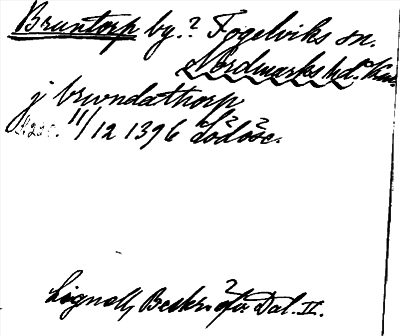 Bruntorp by.? Fogelviks sn.
Nordmarks hd.
j brwndathorp
11/12 1396 Lödöse.
Lignell, Beskr. öfv. Dal. II.